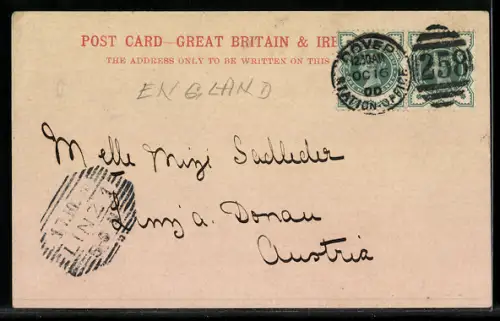 POST CARD—GREAT BRITAIN & IRE
THE ADDRESS ONLY TO BE WRITTEN ON THIS
DOVER
12.30AM
OC 16
00
STATION-OFFICE
258
ENGLAND
Melle Mizi Sadleder
Linz a. Donau
Austria
LINZ 1